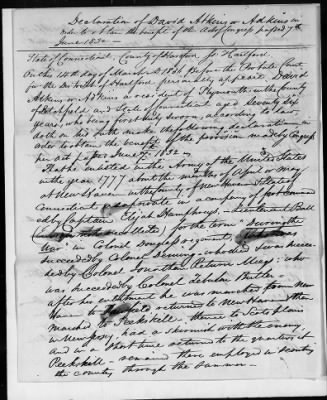 Declaration of David Atkins or Adkins in
order to obtain the benefit of the Act of Congress passed 7th
June 1832.
State of Connecticut, County of Hartford, ss Hartford.
On this 14th day of March AD 1836 before the Probate Court
for the District of Hartford, personally appeared David
Atkins or Adkins a resident of Plymouth in the County
of Litchfield and State of Connecticut aged Seventy Six
years, who being first duly sworn, according to law
doth on his oath make the following declaration in
order to obtain the benefit of the provision made by Congress
per act passed June 7, 1832.
That he enlisted in the Army of the United States
in the year 1777 about the month of April or May
at New Haven in the County of New Haven & State of
Connecticut as a private in a company of foot commanded
by Captain Elijah Humphreys - Lieutenant Ball
for the term "During the
War" in Colonel Douglass regiment
succeeded by Colonel Deming who died & was succeeded
by Colonel Jonathan Return Meigs: who
was succeeded by Colonel Zebulon Butler -
after his enlistment he was marched from New
Haven to returned to New Haven then
marched to Peekskill - thence to Scotch plains
in New Jersey, had a skirmish with the enemy,
and in a short time returned to the quarters at
Peekskill - remained there employed in scouting
the country through the summer -